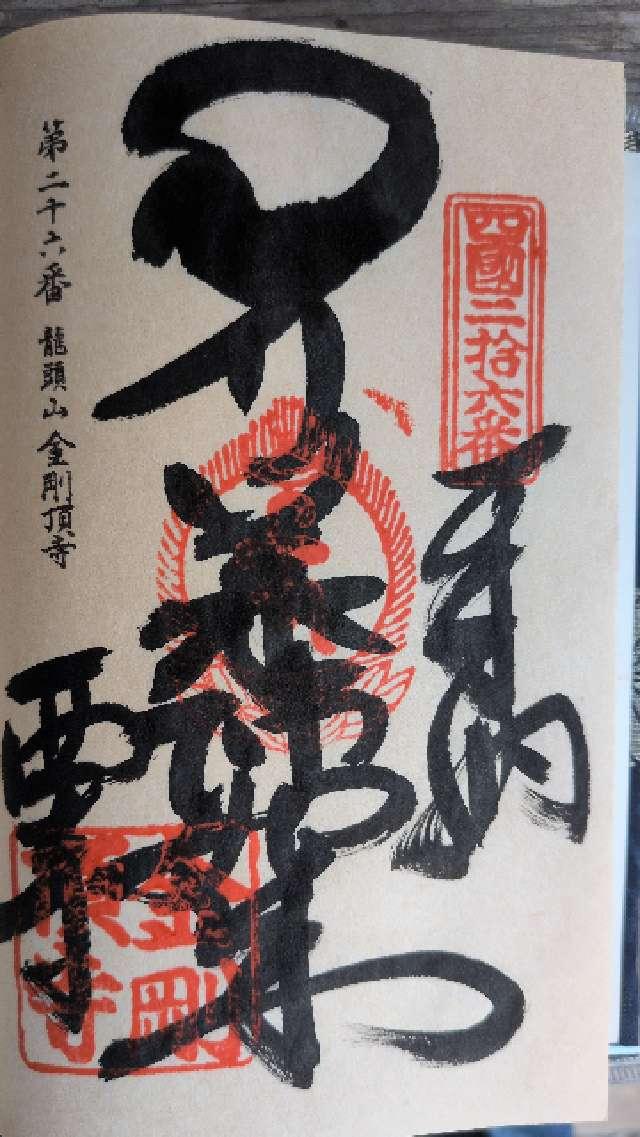 四國二拾六番
奉納
薬師如来
西寺
金剛頂寺
第二十六番 龍頭山 金剛頂寺